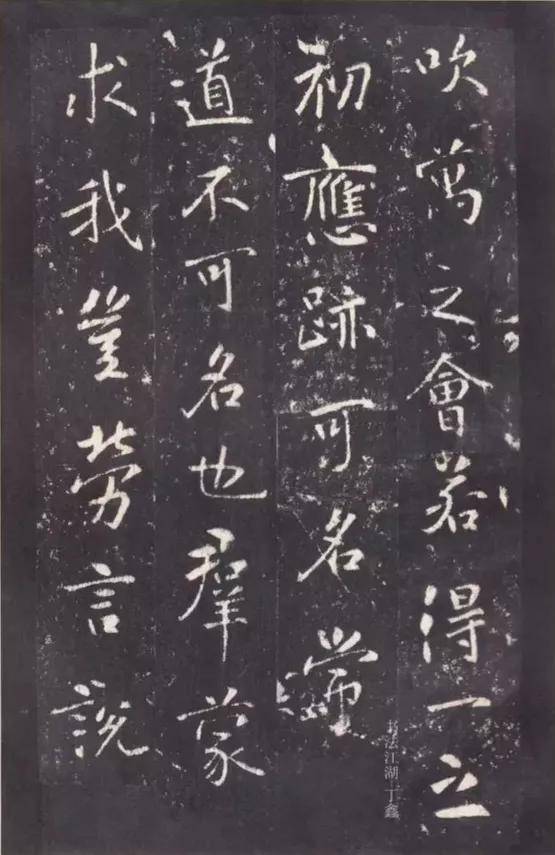 吹萬之會若得一之
初應跡可名常
道不可名也羣蒙
求我豈勞言說
书法江湖 丁鑫